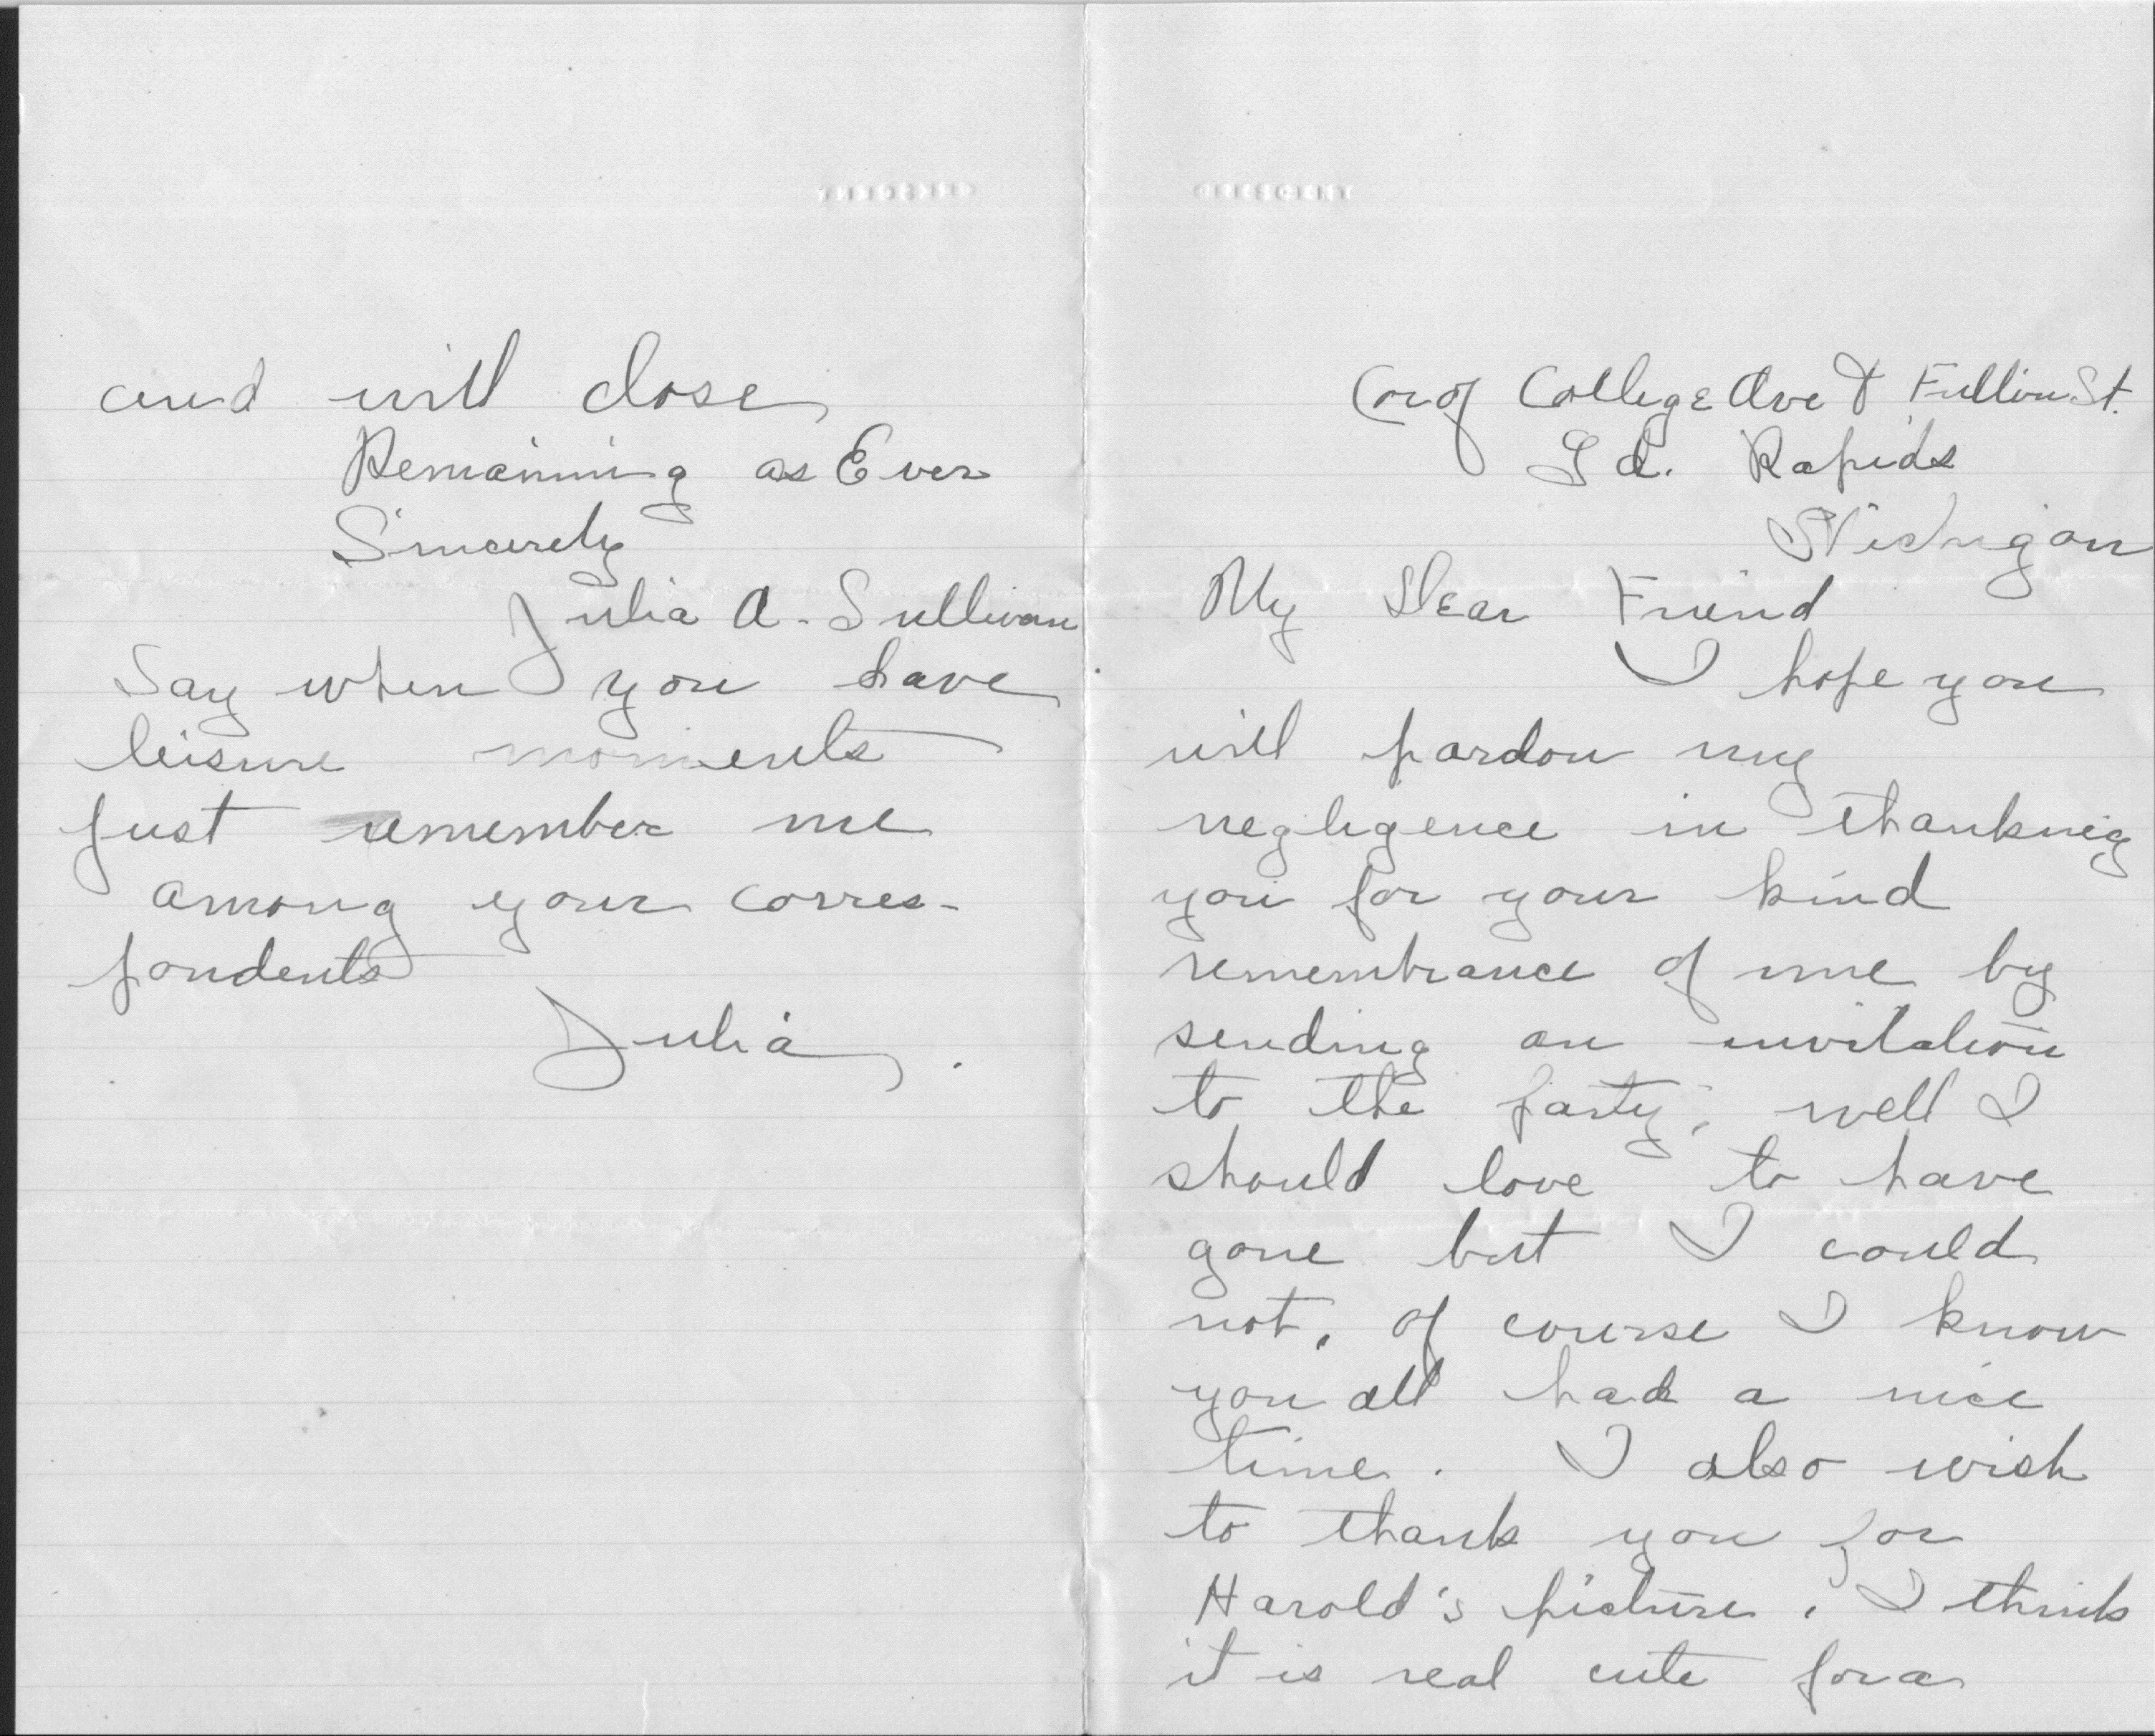 and will close
Remaining as Ever
Sincerely
Julia A. Sullivan
Say when you have
leisure moments
just remember me
among your corres-
pondents
Julia.
CRESCENT
Cor of College Ave & Fulton St.
Gd. Rapids
Michigan
My Dear Friend
I hope you
will pardon my
negligence in thanking
you for your kind
remembrance of me by
sending an invitation
to the party; well I
should love to have
gone but I could
not, of course I know
you all had a nice
time. I also wish
to thank you for
Harold's picture, I think
it is real cute for a